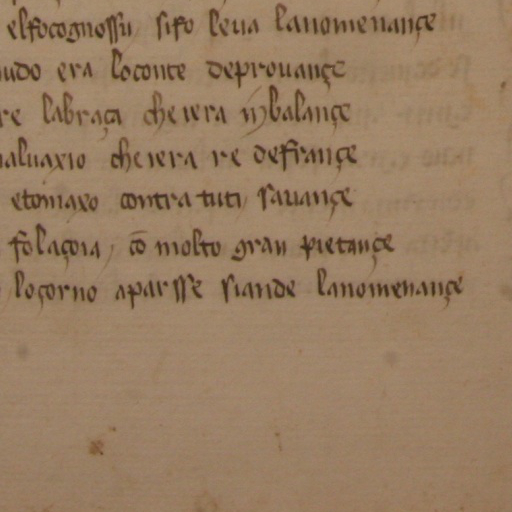 elfocognossu sifo leua lanomenançe
nudo era loconte deprouançe
re labraçi cheiera inbalançe
maluaxio cheiera re defrançe
etomaxo contra tuti sauançe
folaçoia, cõ molto gran pietançe
loçorno aparsse siande lanomenançe